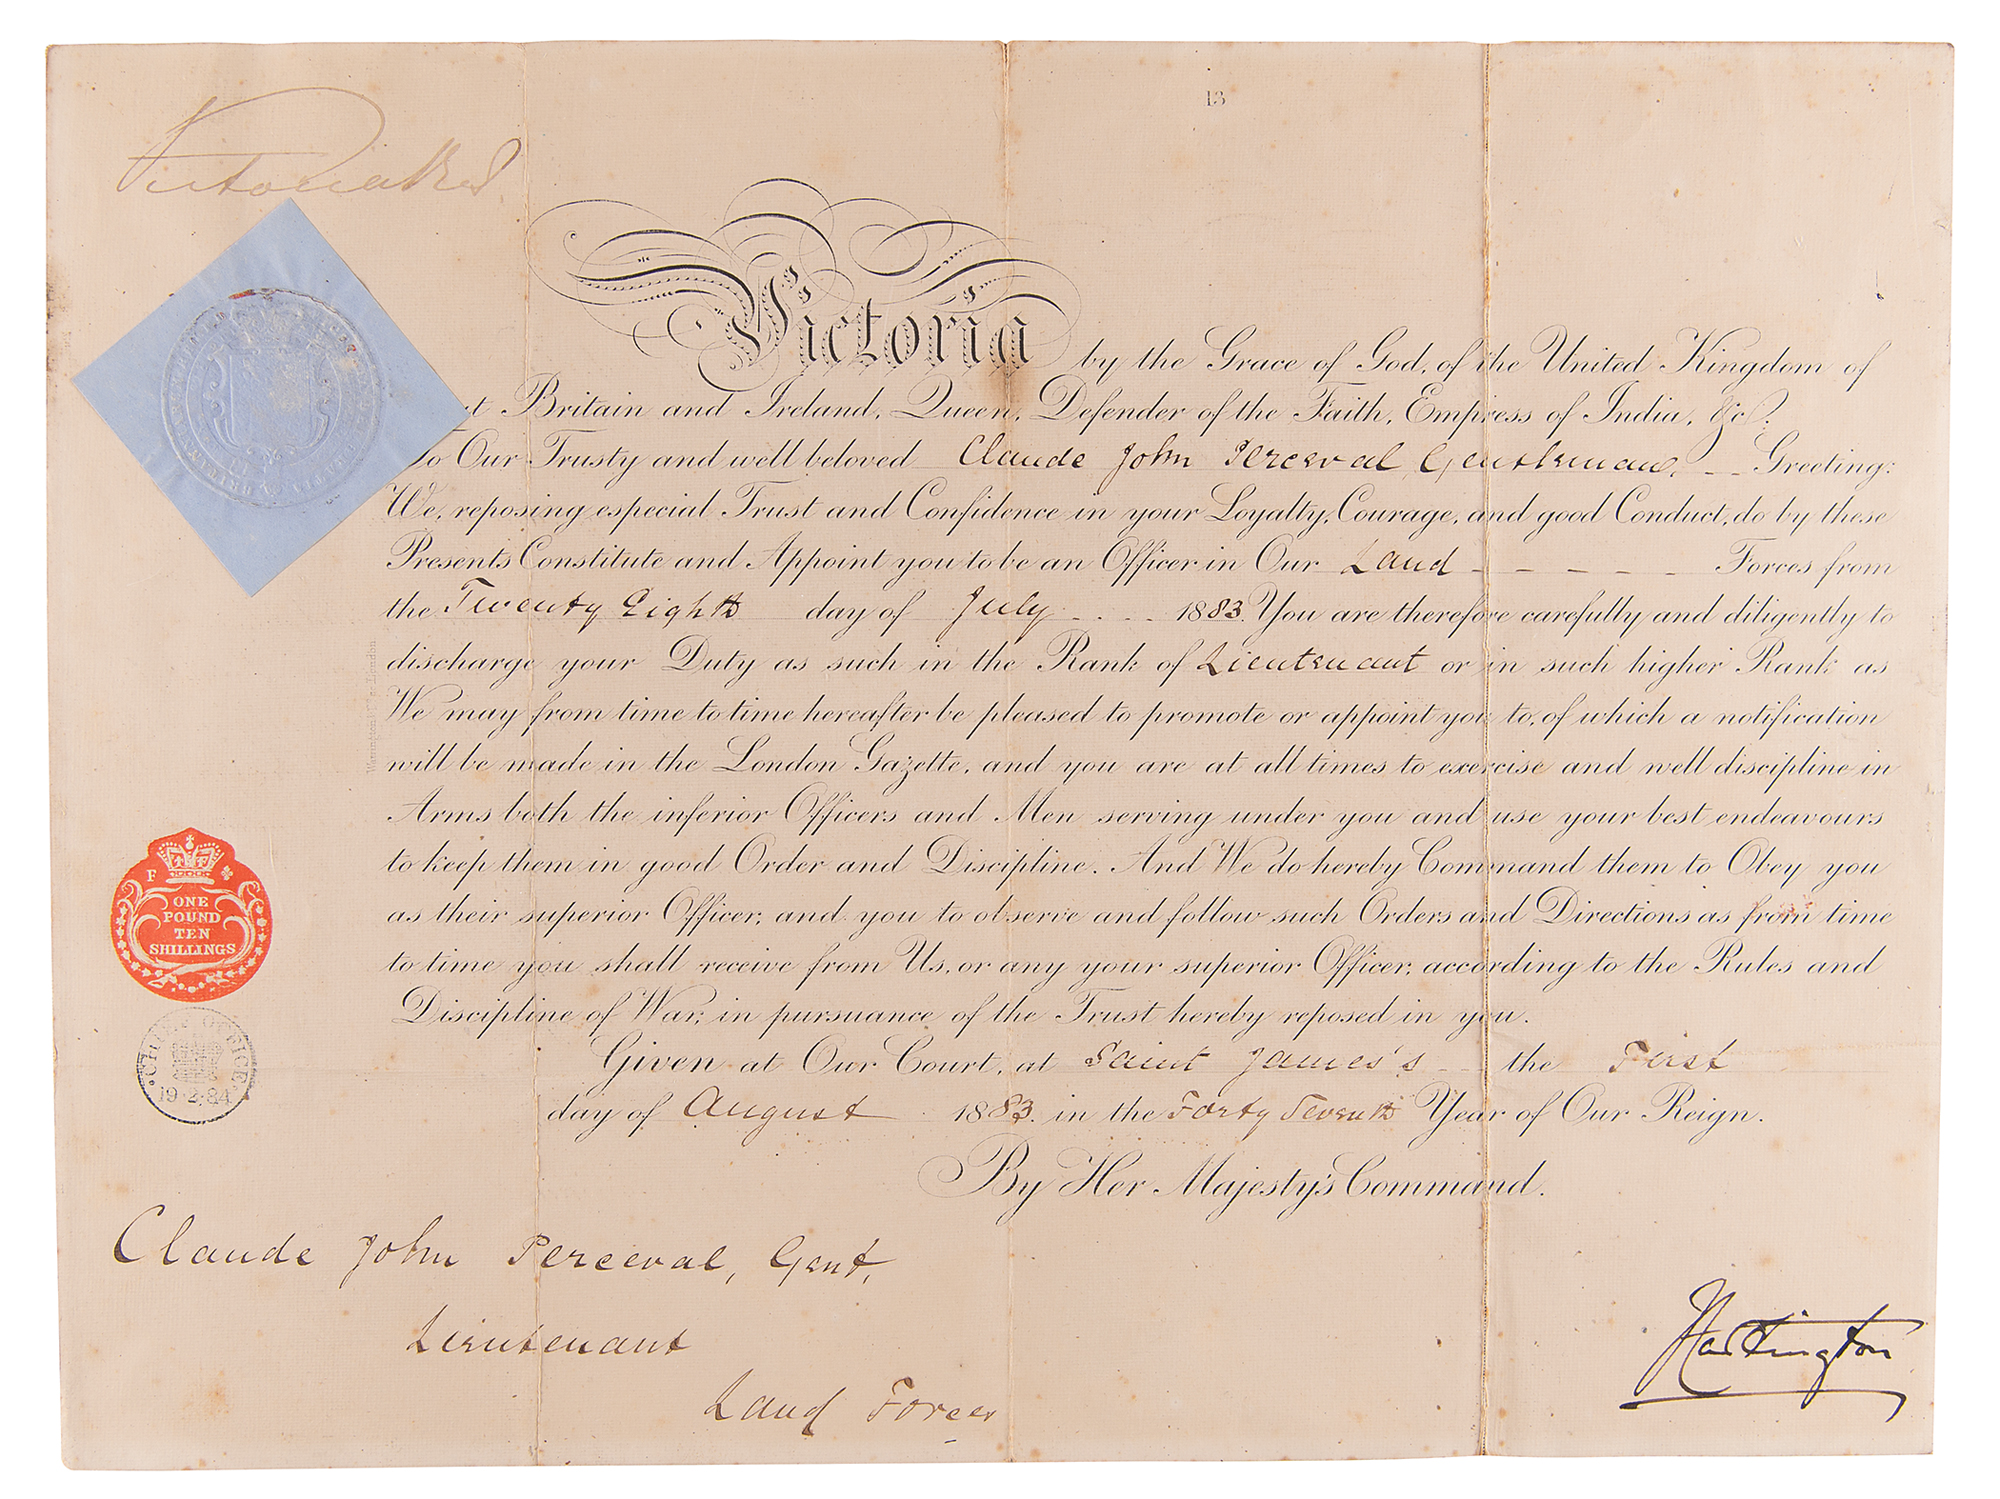 13
Victoria R&I
Victoria by the Grace of God, of the United Kingdom of
Britain and Ireland, Queen, Defender of the Faith, Empress of India, &c.
To Our Trusty and well beloved Claude John Perceval, Gentleman, Greeting:
We, reposing especial Trust and Confidence in your Loyalty, Courage, and good Conduct, do by these
Presents Constitute and Appoint you to be an Officer in Our Land Forces from
the Twenty Eighth day of July 1883. You are therefore carefully and diligently to
discharge your Duty as such in the Rank of Lieutenant or in such higher Rank as
We may from time to time hereafter be pleased to promote or appoint you to, of which a notification
will be made in the London Gazette, and you are at all times to exercise and well discipline in
Arms both the inferior Officers and Men serving under you and use your best endeavours
to keep them in good Order and Discipline. And We do hereby Command them to Obey you
as their superior Officer, and you to observe and follow such Orders and Directions as from time
to time you shall receive from Us, or any your superior Officer, according to the Rules and
Discipline of War, in pursuance of the Trust hereby reposed in you.
Given at Our Court, at Saint James's the First
day of August 1883. in the Forty Seventh Year of Our Reign.
By Her Majesty's Command.
F
ONE
POUND
TEN
SHILLINGS
OFFICE
19·2·84
Claude John Perceval, Gent,
Lieutenant
Land Forces
Hartington